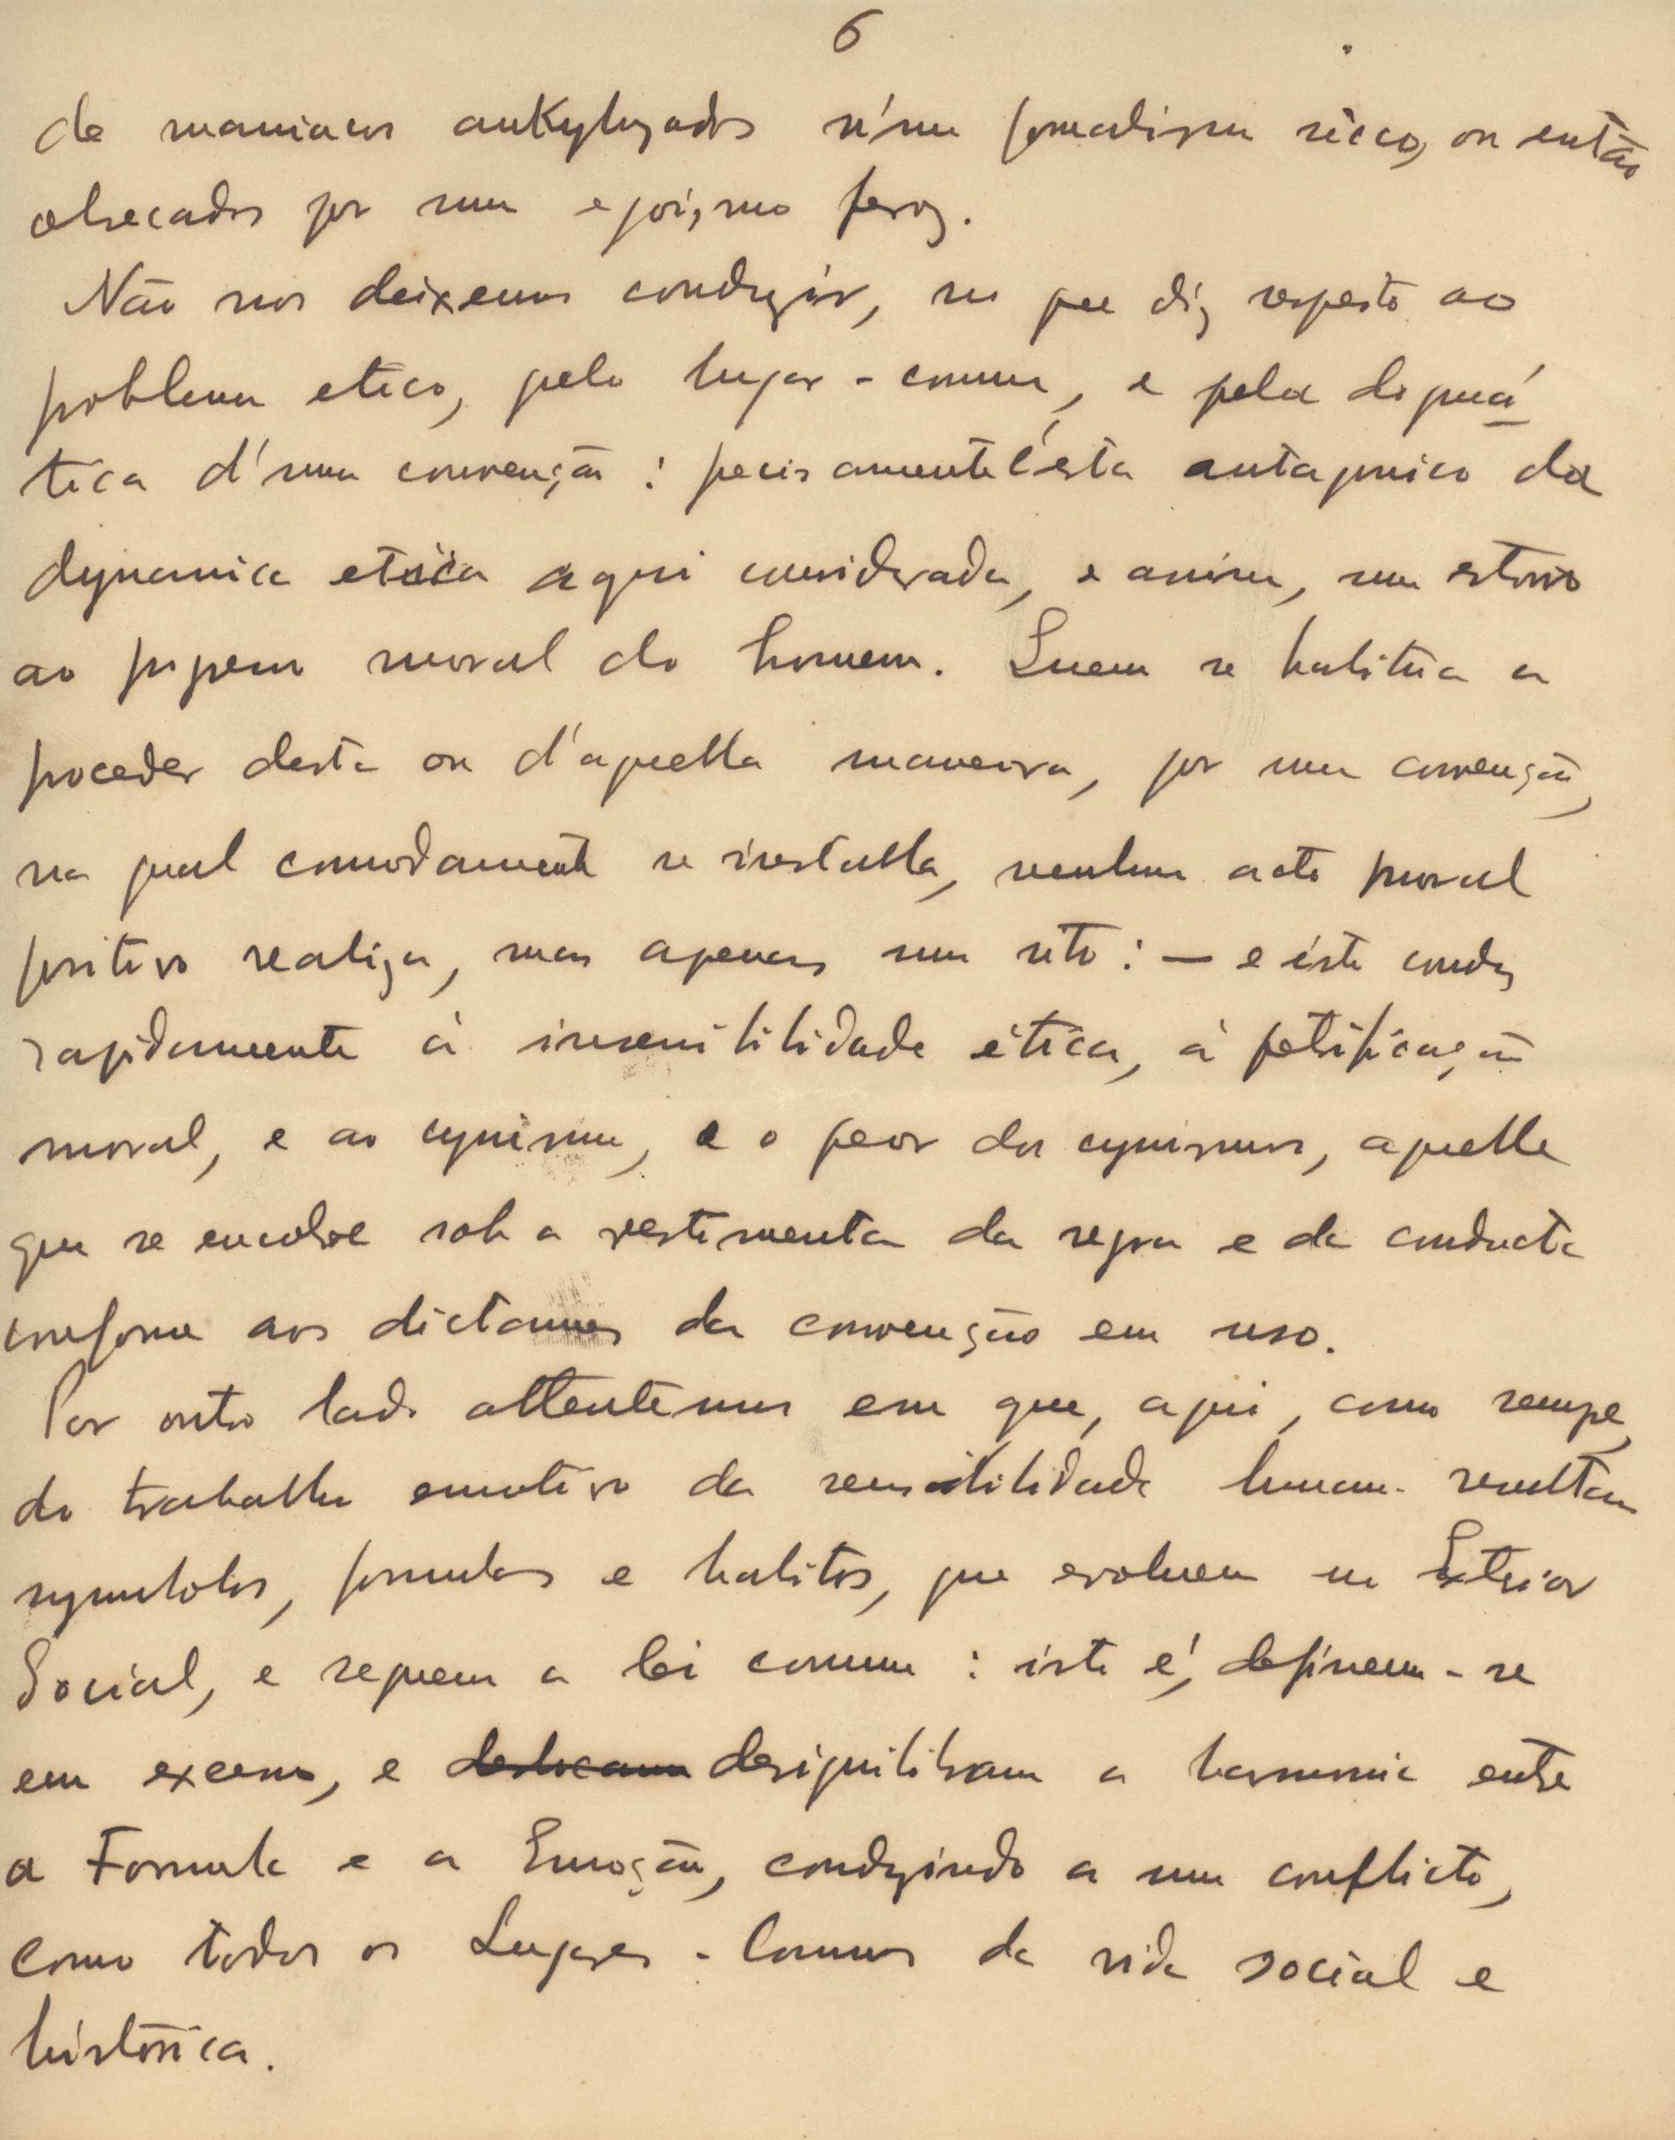 6
de maniacos ankylozados n'um formalismo sêcco, ou então
obsecados por um egoismo feroz.
Não nos deixemos conduzir, no que diz respeito ao
problema etico, pelo lugar-comum, e pela dogmá
tica d'uma convenção: precisamente ésta antagonico da
dynamica etica aqui considerada, e assim, um estorvo
ao progresso moral do homem. Quem se habitúa a
proceder desta ou d'aquella maneira, por uma convenção,
na qual comodamente se installa, nenhum acto moral
positivo realiza, mas apenas um rito: — e éste conduz
rapidamente à insensibilidade ética, à petrificação
moral, e ao cynismo, e o peor dos cynismos, aquelle
que se encobre sob a vestimenta da regra e da conducta
conforme aos dictames da convenção em uso.
Por outro lado attentemos em que, aqui, como sempre,
do trabalho emotivo da sensibilidade humana resultam
symbolos, formulas e habitos, que evoluem no Exterior
Social, e seguem a lei comum: isto é, definem-se
em excesso, e deslocam desiquilibram a harmonia entre
a Formula e a Emoção, conduzindo a um conflicto,
como todos os Lugares-Comuns da vida social e
histórica.